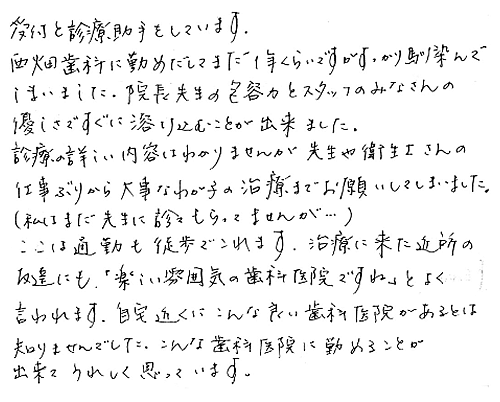 受付と診療助手をしています。
西畑歯科に勤めだしてまだ1年くらいですがすっかり馴染んで
しまいました。院長先生の包容力とスタッフのみなさんの
優しさですぐに溶け込むことが出来ました。
診療の詳しい内容はわかりませんが先生や衛生士さんの
仕事ぶりから大事なわが子の治療までお願いしてしまいました。
(私はまだ先生に診てもらってませんが…)
ここは通勤も徒歩でこれます。治療に来た近所の
友達にも、「楽しい雰囲気の歯科医院ですね」とよく
言われます。自宅近くにこんな良い歯科医院があるとは
知りませんでした。こんな歯科医院に勤めることが
出来てうれしく思っています。